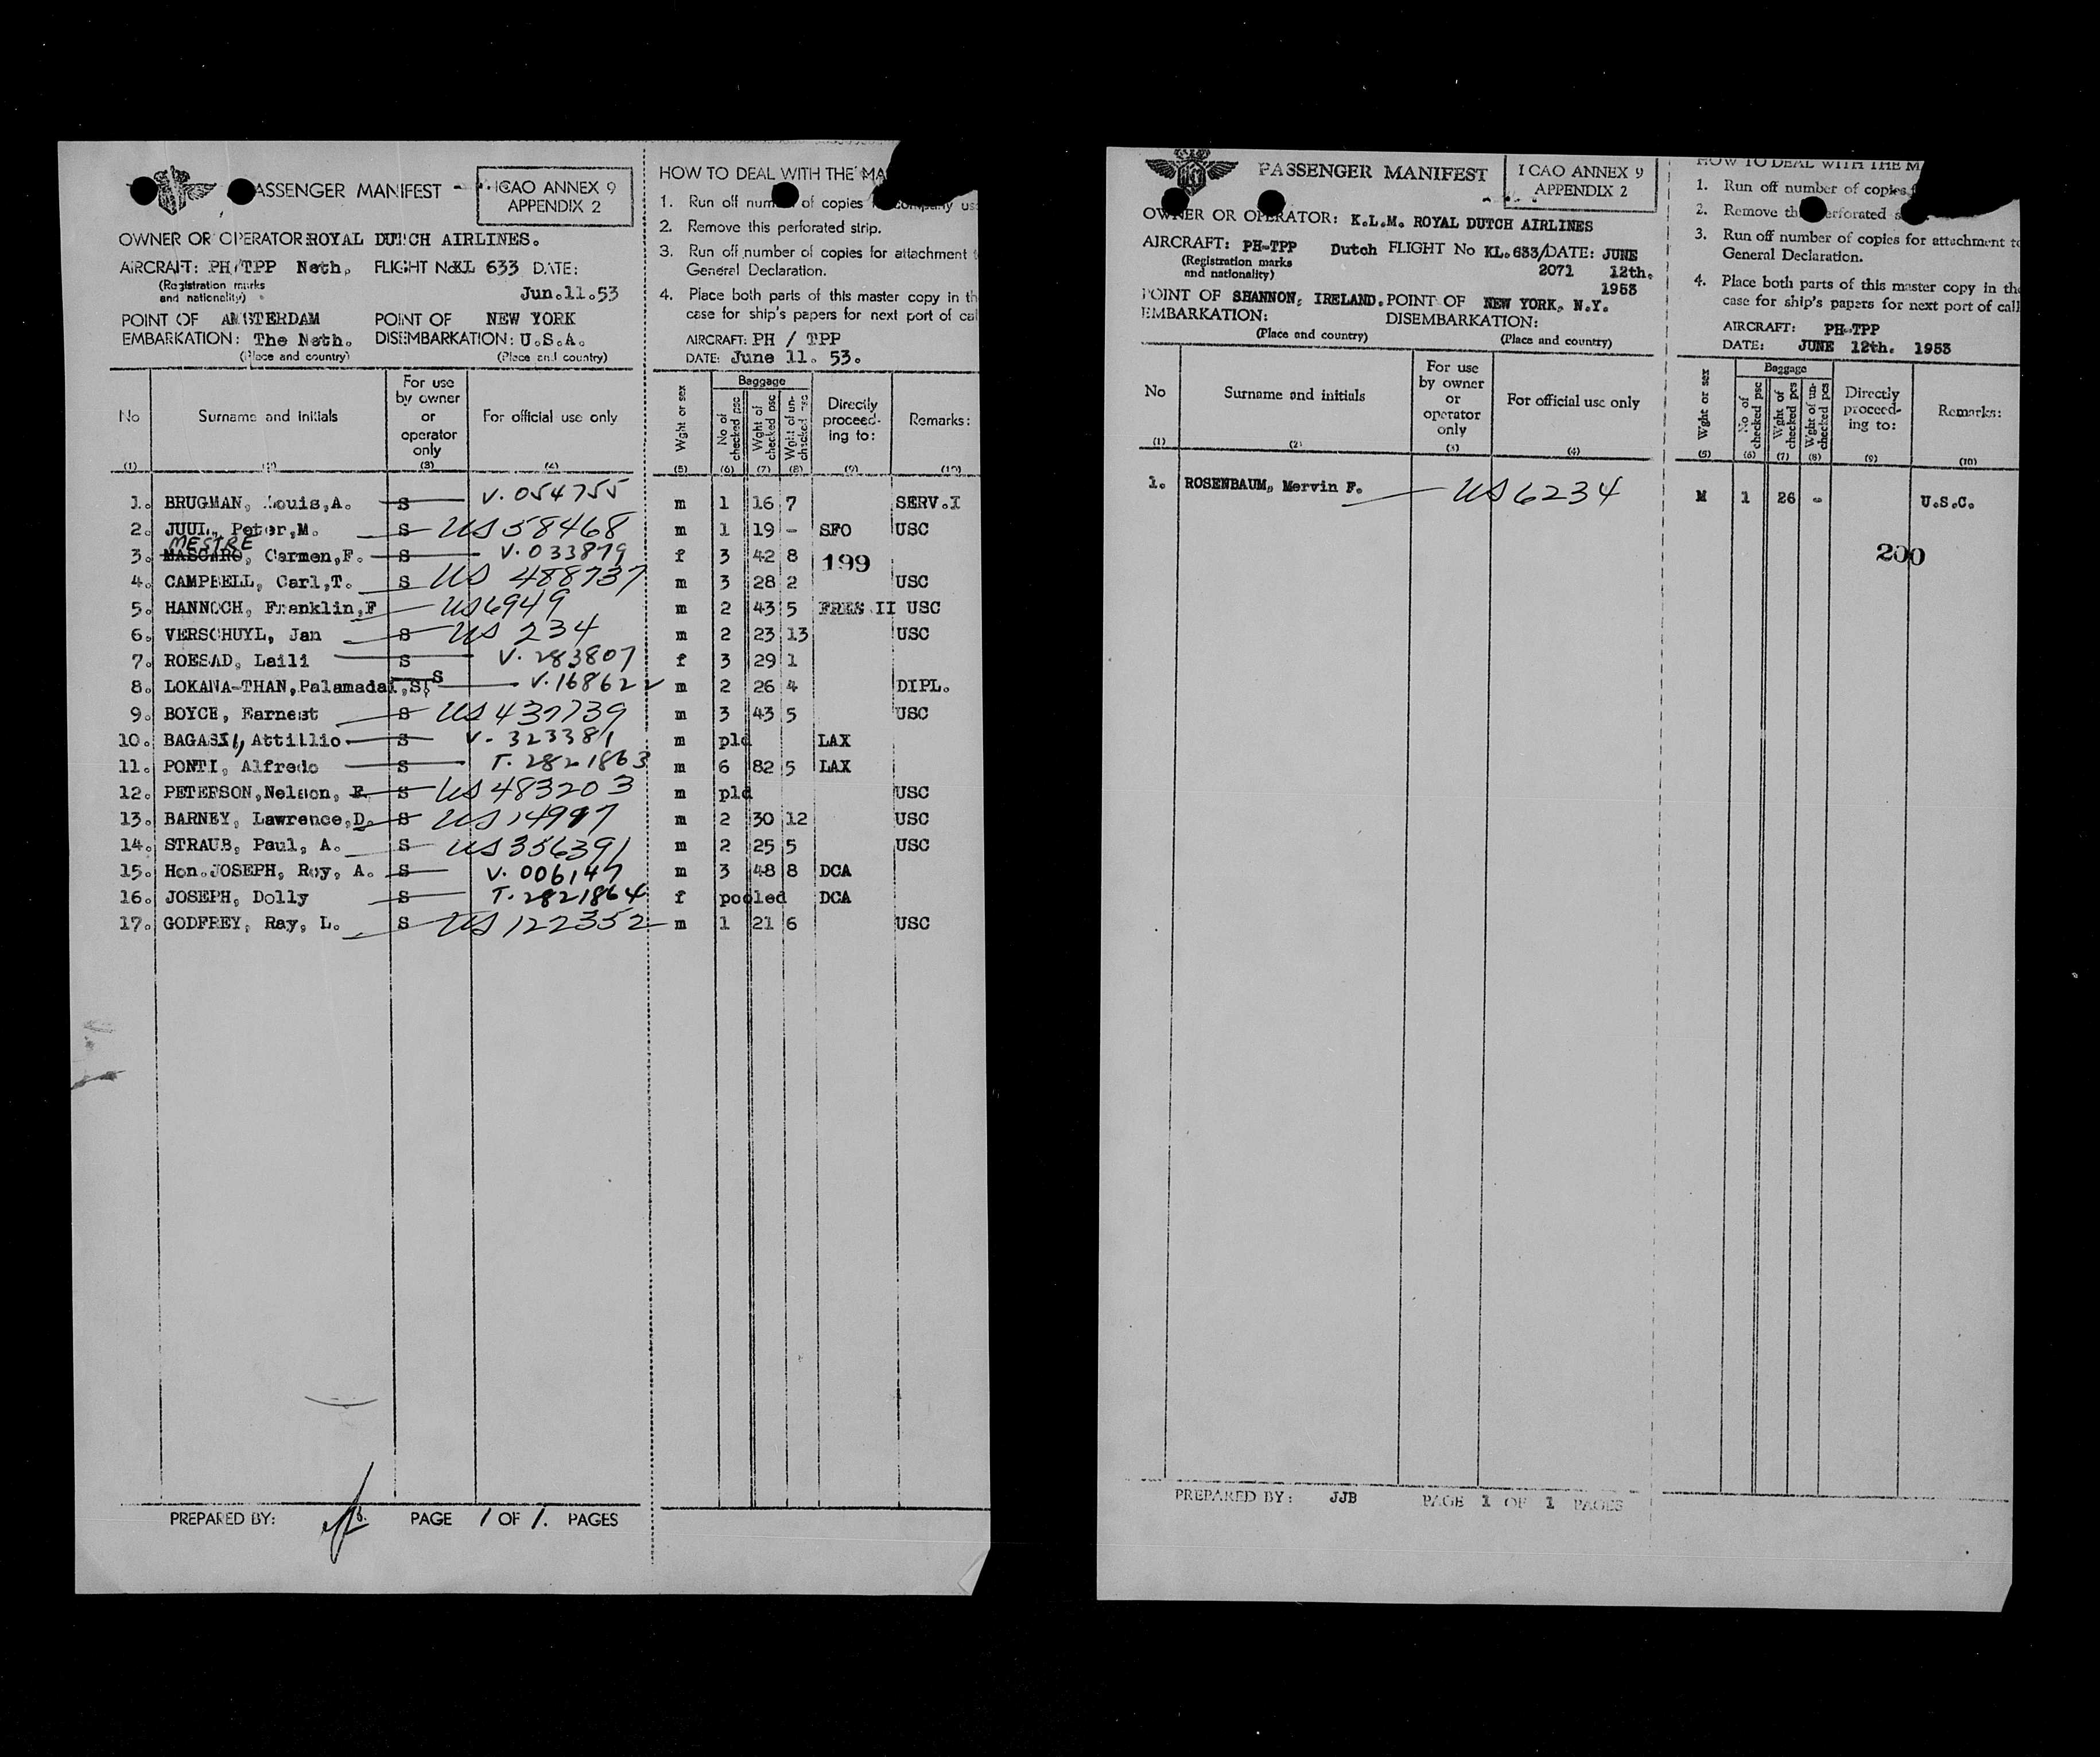 ASSENGER MANIFEST
ICAO ANNEX 9
APPENDIX 2
OWNER OR OPERATOR: ROYAL DUTCH AIRLINES.
AIRCRAFT: PH/TPP Neth. FLIGHT No KL 633 DATE:
(Registration marks
and nationality)
Jun.11.53
POINT OF AMSTERDAM POINT OF NEW YORK
EMBARKATION: The Neth. DISEMBARKATION: U.S.A.
(Place and country) (Place and country)
HOW TO DEAL WITH THE MA
1. Run off num of copies company us
2. Remove this perforated strip.
3. Run off number of copies for attachment
General Declaration.
4. Place both parts of this master copy in th
case for ship's papers for next port of cal
AIRCRAFT: PH / TPP
DATE: June 11. 53.
No Surname and initials For use by owner or operator only For official use only Wght or sex Baggage No of checked psc Wght of checked psc Wght of un-checked psc Directly proceed-ing to: Remarks:
(1) (2) (3) (4) (5) (6) (7) (8) (9) (10)
1. BRUGMAN, Louis,A. S V. 054755 m 1 16 7 SERV.I
2. JUUL, Peter,M. S US 58468 m 1 19 - SFO USC
MESTRE
3. MASCARO, Carmen,F. S V. 033879 f 3 42 8 199
4. CAMPBELL, Carl,T. S US 488737 m 3 28 2 USC
5. HANNOCH, Franklin,F US6949 m 2 43 5 FRES II USC
6. VERSCHUYL, Jan S US 234 m 2 23 13 USC
7. ROESAD, Laili S V. 283807 f 3 29 1
8. LOKANA-THAN,Palamadai,S. S V. 168622 m 2 26 4 DIPL.
9. BOYCE, Earnest S US 437739 m 3 43 5 USC
10. BAGASI, Attillio S V. 323381 m pld LAX
11. PONTI, Alfredo S T. 2821863 m 6 82 5 LAX
12. PETERSON,Nelson, F. S US 483203 m pld USC
13. BARNEY, Lawrence,D. S US 14997 m 2 30 12 USC
14. STRAUB, Paul, A. S US 356391 m 2 25 5 USC
15. Hon.JOSEPH, Roy, A. S V. 006147 m 3 48 8 DCA
16. JOSEPH, Dolly S T. 2821864 f pooled DCA
17. GODFREY, Ray, L. S US 122352 m 1 21 6 USC
PREPARED BY: PAGE 1 OF 1. PAGES
PASSENGER MANIFEST
ICAO ANNEX 9
APPENDIX 2
OWNER OR OPERATOR: K.L.M. ROYAL DUTCH AIRLINES
AIRCRAFT: PH-TPP Dutch FLIGHT No KL.633/ DATE: JUNE
(Registration marks 2071 12th.
and nationality) 1953
POINT OF SHANNON, IRELAND. POINT OF NEW YORK, N.Y.
EMBARKATION: DISEMBARKATION:
(Place and country) (Place and country)
HOW TO DEAL WITH THE M
1. Run off number of copies
2. Remove th erforated s
3. Run off number of copies for attachment to
General Declaration.
4. Place both parts of this master copy in the
case for ship's papers for next port of call
AIRCRAFT: PH-TPP
DATE: JUNE 12th. 1953
No Surname and initials For use by owner or operator only For official use only Wght or sex Baggage No of checked psc Wght of checked pcs Wght of un-checked pcs Directly proceed-ing to: Remarks:
(1) (2) (3) (4) (5) (6) (7) (8) (9) (10)
1. ROSENBAUM, Mervin F. US 6234 M 1 26 - U.S.C.
200
PREPARED BY: JJB PAGE 1 OF 1 PAGES